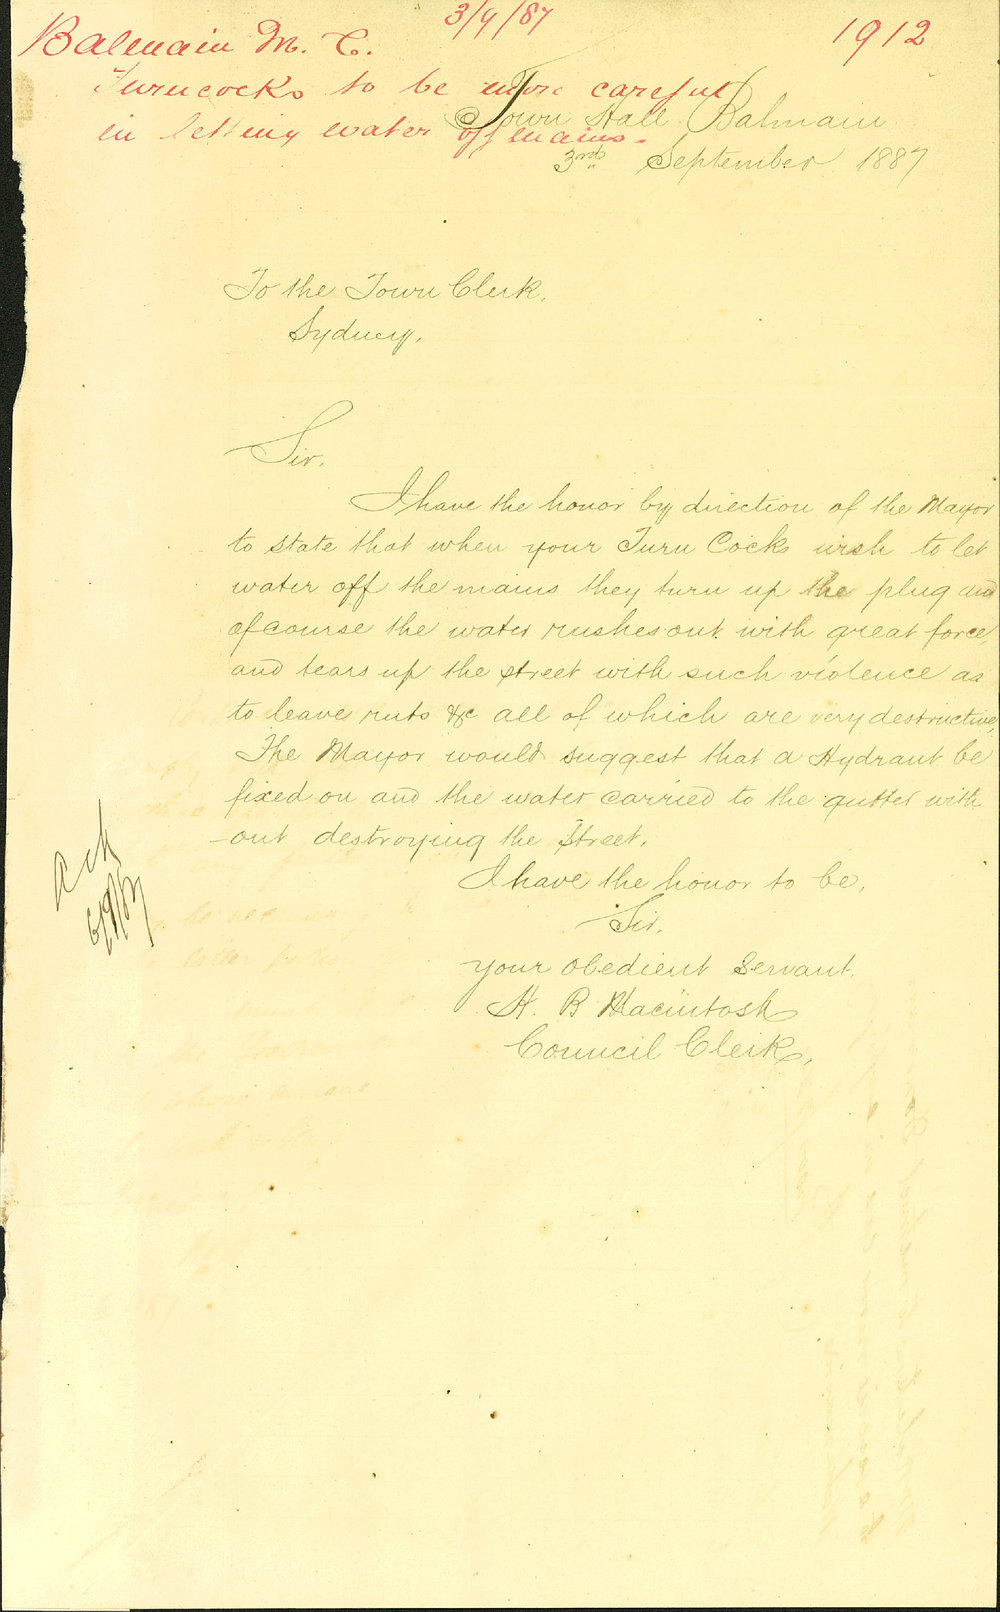 3/9/87
Balmain M. C. 1912
Turncocks to be more careful
in letting water off mains.
Town Hall Balmain
3rd September 1887
To the Town Clerk,
Sydney.
Sir,
I have the honor by direction of the Mayor
to state that when your Turn Cocks wish to let
water off the mains they turn up the plug and
of course the water rushes out with great force,
and tears up the street with such violence as
to leave ruts &c all of which are very destructive,
The Mayor would suggest that a Hydrant be
fixed on and the water carried to the gutter with
-out destroying the Street.
I have the honor to be,
Sir,
your obedient Servant.
H. B Macintosh
Council Clerk,
Ack
6/9/87